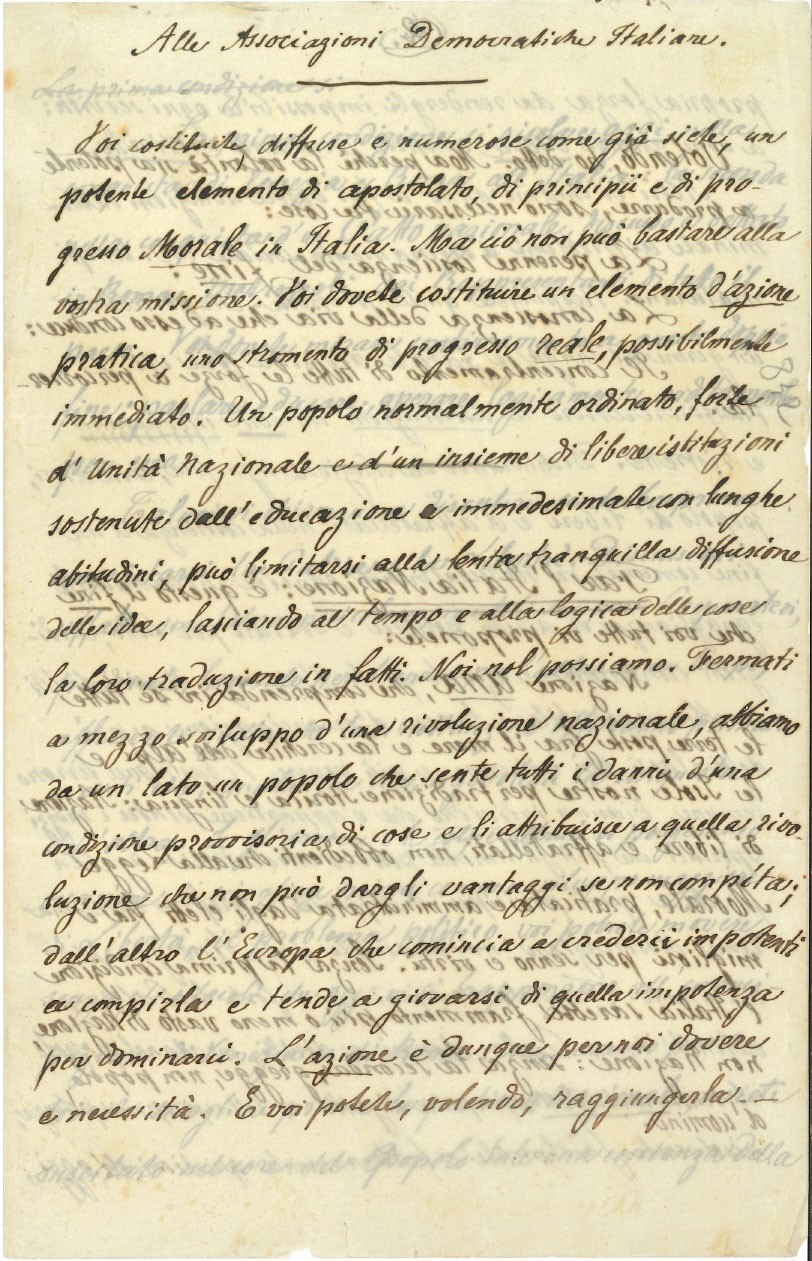 Alle Associazioni Democratiche Italiane.
Voi costituite, diffuse e numerose come già siete, un
potente elemento di apostolato, di principii e di pro-
gresso Morale in Italia. Ma ciò non può bastare alla
vostra missione. Voi dovete costituire un elemento d'azione
pratica, uno stromento di progresso reale, possibilmente
immediato. Un popolo normalmente ordinato, forte
d'Unità Nazionale e d'un insieme di libere istituzioni
sostenute dall'educazione e immedesimate con lunghe
abitudini, può limitarsi alla lenta tranquilla diffusione
delle idee, lasciando al tempo e alla logica delle cose
la loro traduzione in fatti. Noi nol possiamo. Fermati
a mezzo sviluppo d'una rivoluzione nazionale, abbiamo
da un lato un popolo che sente tutti i danni d'una
condizione provvisoria di cose e li attribuisce a quella rivo-
luzione che non può dargli vantaggi se non compíta;
dall'altro l'Europa che comincia a crederci impotenti
a compirla e tende a giovarsi di quella impotenza
per dominarci. L'azione è dunque per noi dovere
e necessità. E voi potete, volendo, raggiungerla —